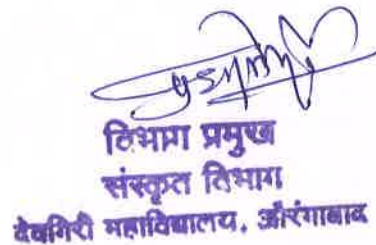 विभाग प्रमुख
संस्कृत विभाग
देवगिरी महाविद्यालय, औरंगाबाद